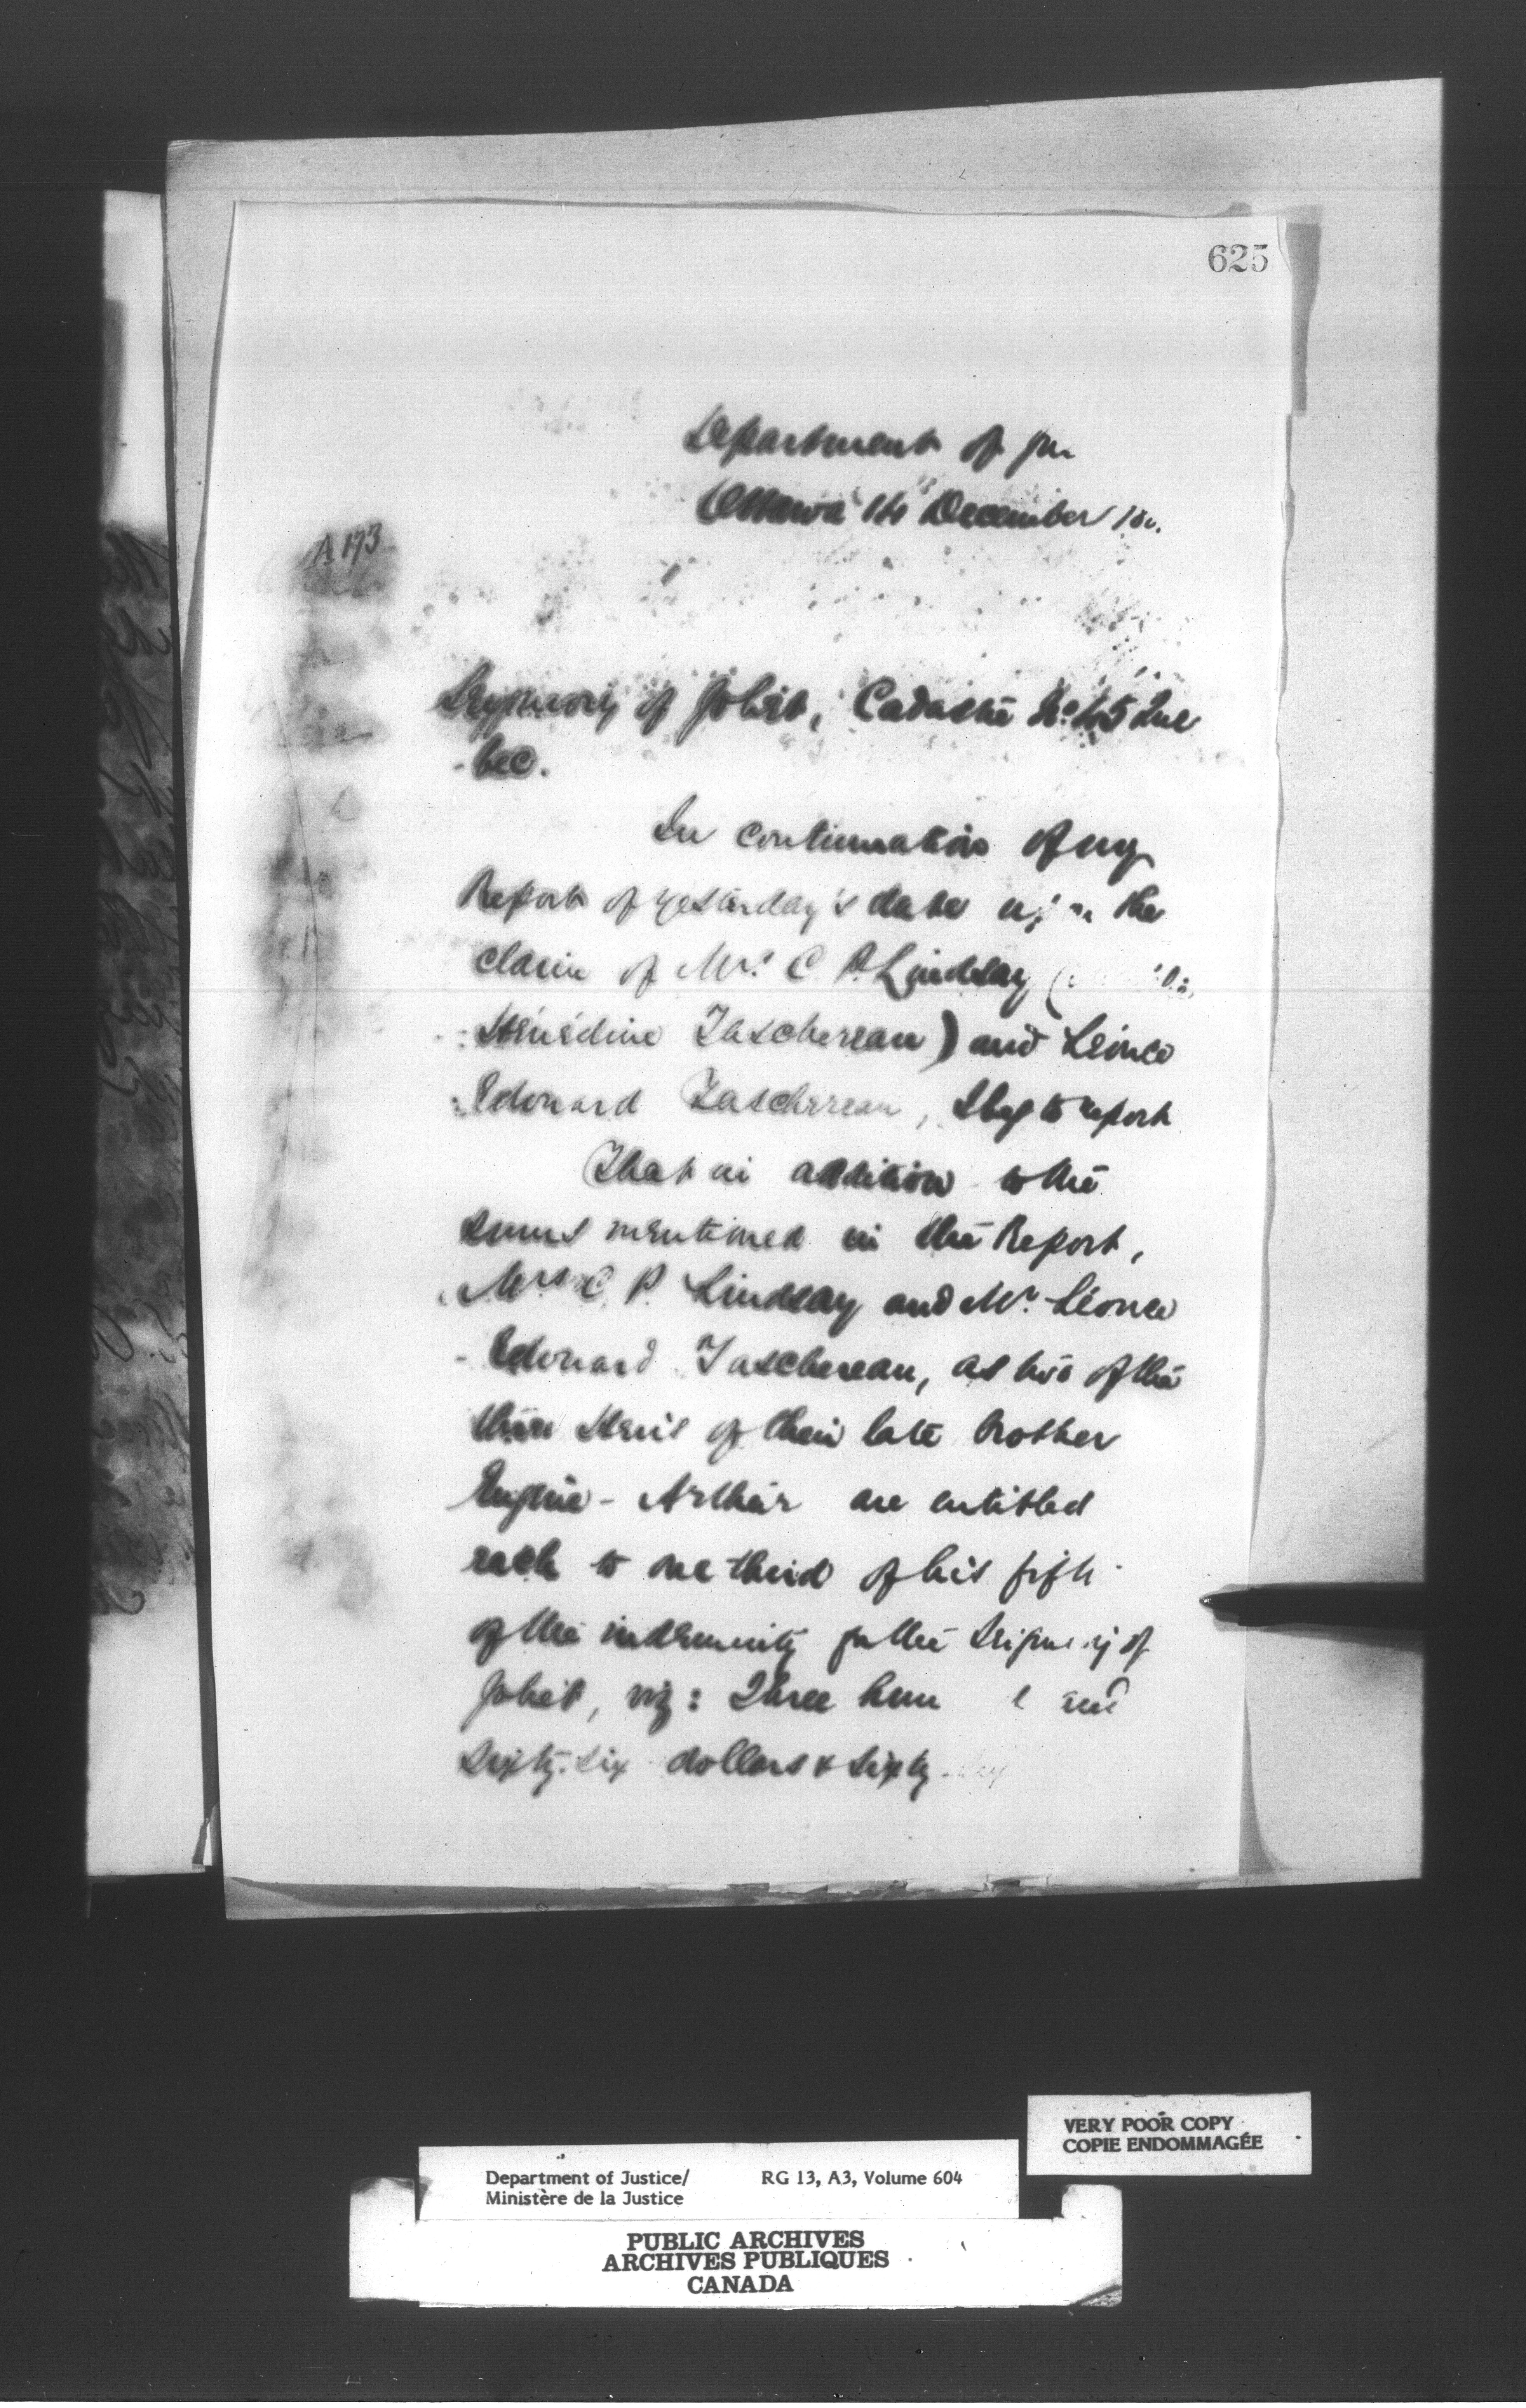 625
Department of
Ottawa 14 December 18
A 173
Seigneory of Joliet, Cadastre No. 45 Que
-bec.
In continuation of my
Report of yesterday's date upon the
claim of Mrs. C P. Lindsay (
Hénédine Taschereau) and Léonce
Edouard Taschereau, I beg to report
That in addition to the
sums mentioned in the Report,
Mrs C. P. Lindsay and Mr. Léonce
-Edouard Taschereau, as two of the
three Heirs of their late brother
Eugène-Arthur are entitled
each to one third of his fifth
of the indemnity for the Seigneory of
Joliet, viz: Three hun and
Sixty-six dollars & sixty-six
VERY POOR COPY
COPIE ENDOMMAGÉE
Department of Justice/ RG 13, A3, Volume 604
Ministère de la Justice
PUBLIC ARCHIVES
ARCHIVES PUBLIQUES
CANADA